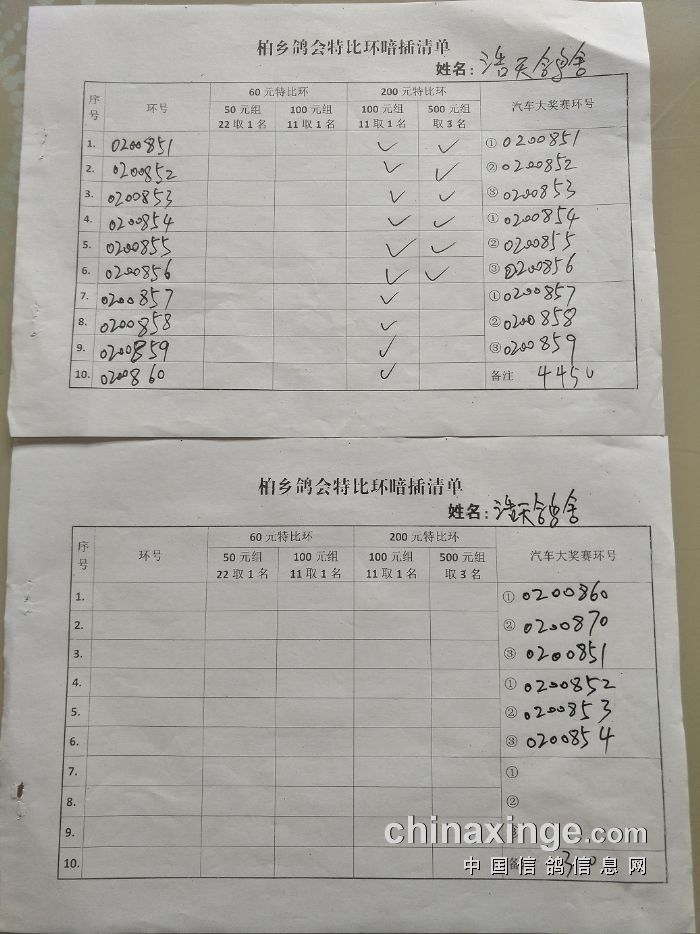 柏乡鸽会特比环暗插清单
姓名：浩天鸽舍
序号 环号 60元特比环 200元特比环 汽车大奖赛环号
50元组 22取1名 100元组 11取1名 100元组 11取1名 500元组 取3名
1. 0200851 ✓ ✓ ① 0200851
2. 0200852 ✓ ✓ ② 0200852
3. 0200853 ✓ ✓ ③ 0200853
4. 0200854 ✓ ✓ ① 0200854
5. 0200855 ✓ ✓ ② 0200855
6. 0200856 ✓ ✓ ③ 0200856
7. 0200857 ✓ ① 0200857
8. 0200858 ✓ ② 0200858
9. 0200859 ✓ ③ 0200859
10. 0200860 ✓ 备注 4450
柏乡鸽会特比环暗插清单
姓名：浩天鸽舍
序号 环号 60元特比环 200元特比环 汽车大奖赛环号
50元组 22取1名 100元组 11取1名 100元组 11取1名 500元组 取3名
1. ① 0200860
2. ② 0200870
3. ③ 0200851
4. ① 0200852
5. ② 0200853
6. ③ 0200854
7. ①
8. ②
9.
chinaxinge.com
10. 备
中国信鸽信息网